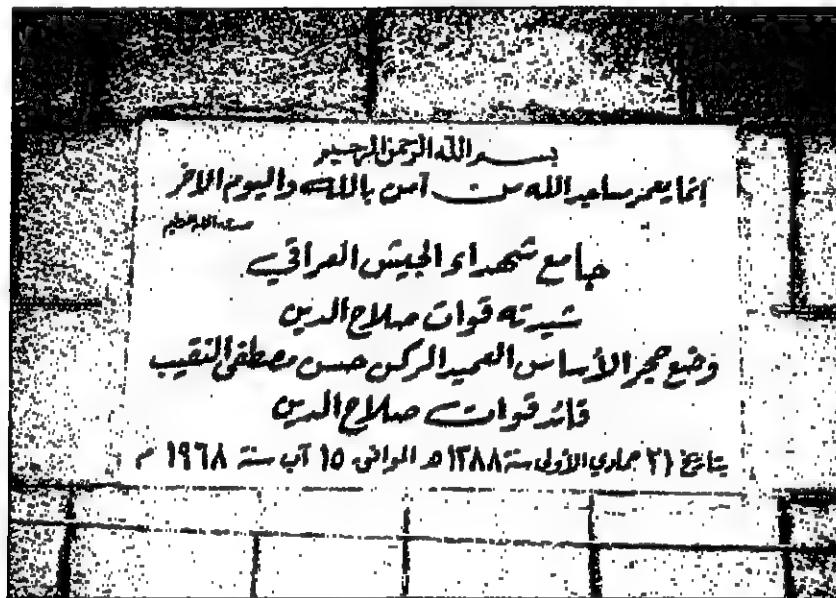 بسم الله الرحمن الرحيم
إنما يعمر مساجد الله من آمن بالله واليوم الآخر
صدق الله العظيم
جامع شهداء الجيش العراقي
شيدته قوات صلاح الدين
وضع حجر الأساس العميد الركن حسن مصطفى النقيب
قائد قوات صلاح الدين
بتاريخ ٢١ جمادي الأولى سنة ١٣٨٨ هـ الموافق ١٥ آب سنة ١٩٦٨ م